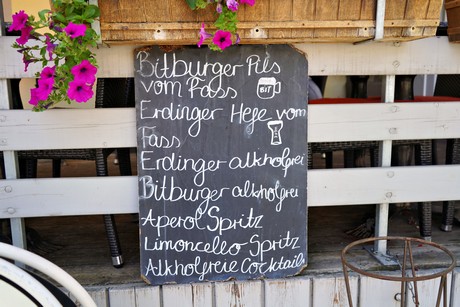 Bitburger Pils
vom Fass
BIT
Erdinger Hefe vom
Fass
Erdinger alkholfrei
Bitburger alkholfrei
Aperol Spritz
Limoncello Spritz
Alkholfreie Cocktails